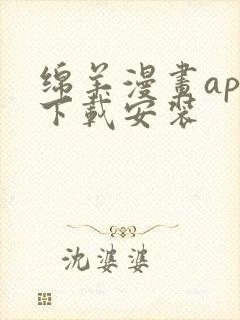 绵羊漫畫ap
下載安裝
沈婆婆